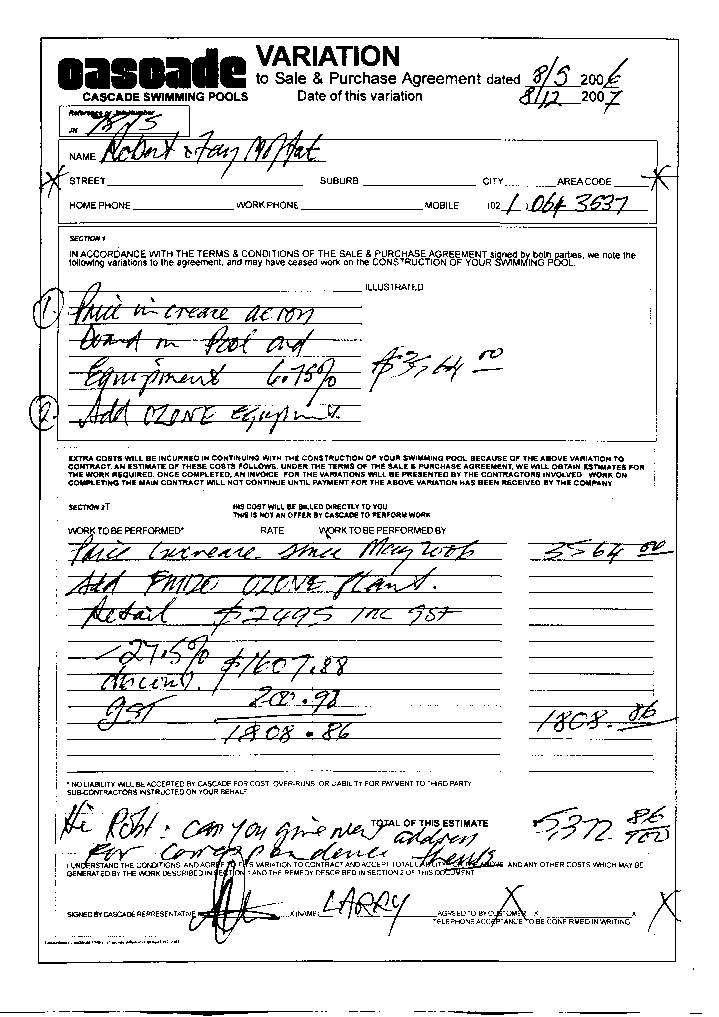 cascade
CASCADE SWIMMING POOLS
VARIATION
to Sale & Purchase Agreement dated 8/5 2006
Date of this variation 8/12 2007
Reference or Job Number
JN 1875
NAME Robert & Fay Moffat
STREET SUBURB CITY AREA CODE
HOME PHONE WORK PHONE MOBILE (02 1 ) 064 3537
SECTION 1
IN ACCORDANCE WITH THE TERMS & CONDITIONS OF THE SALE & PURCHASE AGREEMENT signed by both parties, we note the
following variations to the agreement, and may have ceased work on the CONSTRUCTION OF YOUR SWIMMING POOL.
ILLUSTRATED
1. Price increase across
board on Pool and
Equipment 6.75% $3564 00
2. Add OZONE Equipment
EXTRA COSTS WILL BE INCURRED IN CONTINUING WITH THE CONSTRUCTION OF YOUR SWIMMING POOL BECAUSE OF THE ABOVE VARIATION TO
CONTRACT. AN ESTIMATE OF THESE COSTS FOLLOWS. UNDER THE TERMS OF THE SALE & PURCHASE AGREEMENT, WE WILL OBTAIN ESTIMATES FOR
THE WORK REQUIRED. ONCE COMPLETED, AN INVOICE FOR THE VARIATIONS WILL BE PRESENTED BY THE CONTRACTORS INVOLVED. WORK ON
COMPLETING THE MAIN CONTRACT WILL NOT CONTINUE UNTIL PAYMENT FOR THE ABOVE VARIATION HAS BEEN RECEIVED BY THE COMPANY
SECTION 2T HIS COST WILL BE BILLED DIRECTLY TO YOU
THIS IS NOT AN OFFER BY CASCADE TO PERFORM WORK
WORK TO BE PERFORMED* RATE WORK TO BE PERFORMED BY
Price increase since May 2006 3564 00
Add OZONE Plant.
Retail $2495 inc GST
-27.5% $1607.88
discount.
GST 200.98
1808.86 1808.86
* NO LIABILITY WILL BE ACCEPTED BY CASCADE FOR COST, OVER-RUNS, OR LIABILITY FOR PAYMENT TO THIRD PARTY
SUB-CONTRACTORS INSTRUCTED ON YOUR BEHALF
TOTAL OF THIS ESTIMATE 5372 86/100
Hi Robt: can you give new address
For Correspondence thanks
I UNDERSTAND THE CONDITIONS AND AGREE TO THIS VARIATION TO CONTRACT AND ACCEPT TOTAL THE ABOVE AND ANY OTHER COSTS WHICH MAY BE
GENERATED BY THE WORK DESCRIBED IN SECTION 1 AND THE REMEDY DESCRIBED IN SECTION 2 OF THIS DOCUMENT
SIGNED BY CASCADE REPRESENTATIVE X (NAME) LARRY AGREED TO BY CUSTOMER X X
TELEPHONE ACCEPTANCE TO BE CONFIRMED IN WRITING